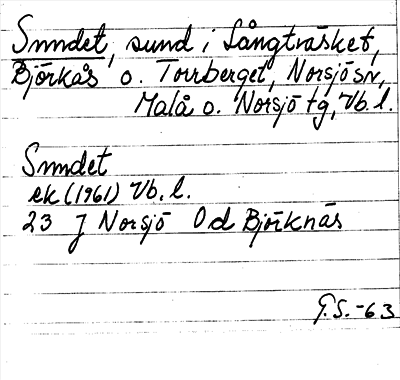 Sundet, sund i Långträsket,
Björkås o. Torrberget, Norsjö sn,
Malå o. Norsjö tg, Vb. l.
Sundet
ek (1961) Vb. l.
23 J Norsjö 0d Björknäs
G.S. -63